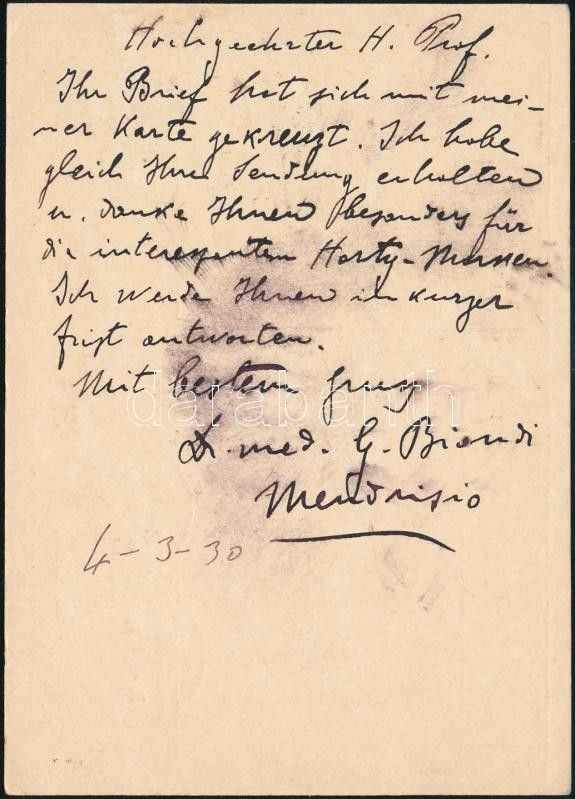 Hochgeehrter H. Prof.
Ihr Brief hat sich mit mei-
ner Karte gekreuzt. Ich habe
gleich Ihre Sendung erhalten
u. danke Ihnen besonders für
die interessanten Horty-Marken.
Ich werde Ihnen in kurzer
frist antworten.
Mit bestem gruss
Dr. med. G. Biondi
Mendrisio
4-3-30
darabanth